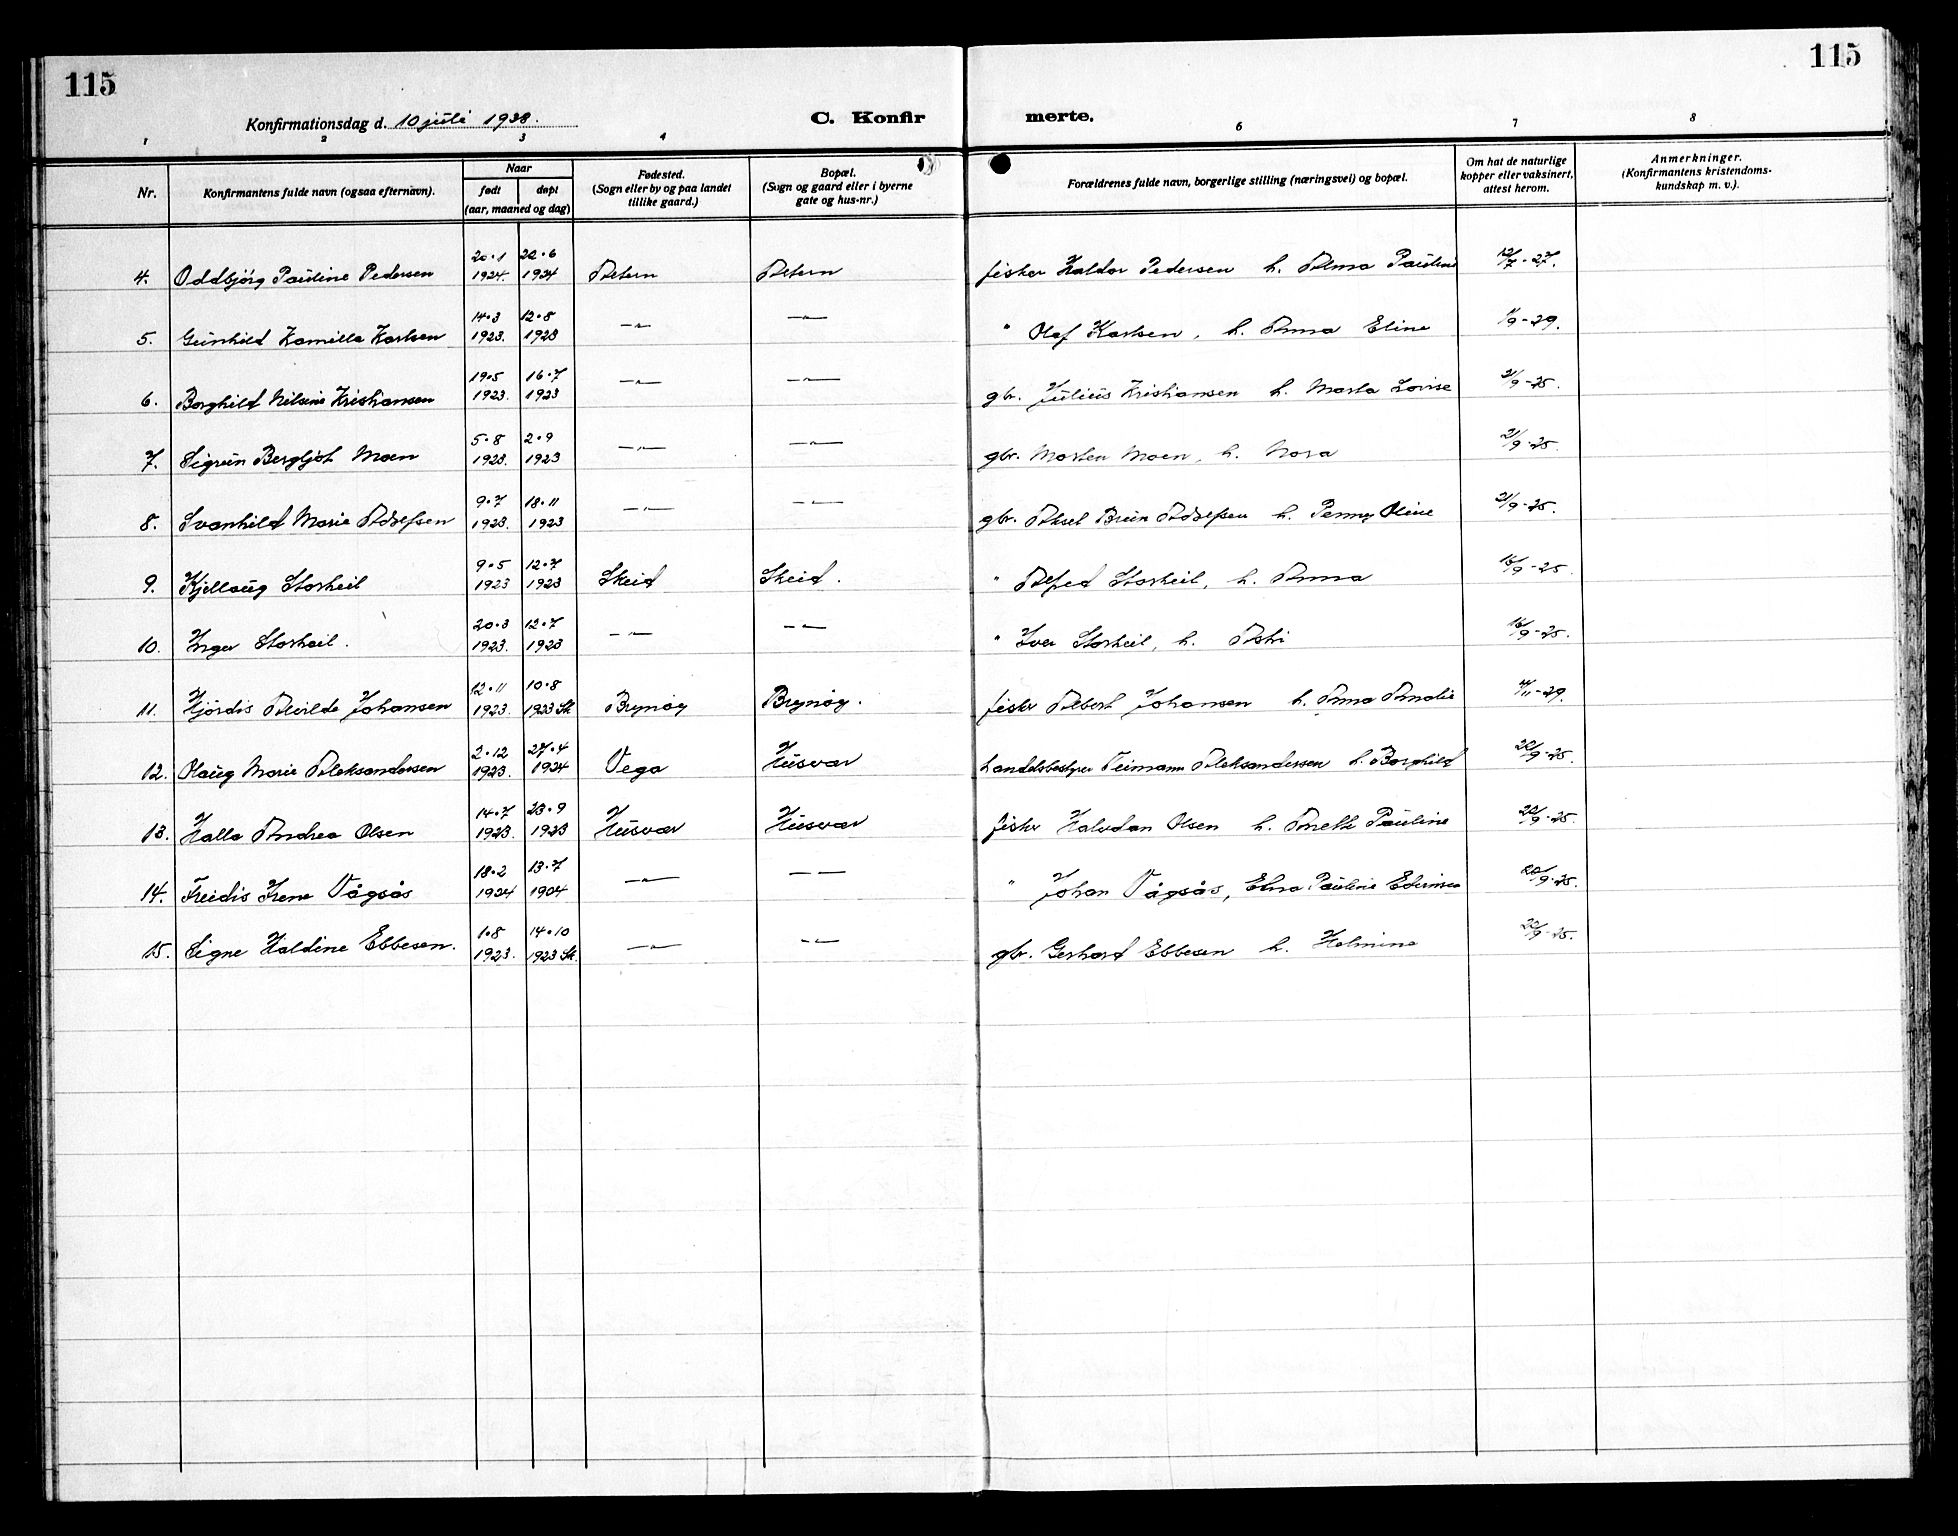 115
115
Konfirmationsdag d. 10 juli 1938.
C. Konfir
merte.
1 2 3 4 6 7 8
Nr.
Konfirmantens fulde navn (ogsaa efternavn).
Naar
født døpt
(aar, maaned og dag)
Fødested.
(Sogn eller by og paa landet
tillike gaard.)
Bopæl.
(Sogn og gaard eller i byerne
gate og hus-nr.)
Forældrenes fulde navn, borgerlige stilling (næringsvei) og bopæl.
Om hat de naturlige
kopper eller vaksinert,
attest herom.
Anmerkninger.
(Konfirmantens kristendoms-
kundskap m. v.).
20.1 22.6
4. Oddbjörg Pauline Pedersen 1924. 1924 Altern Altern fisker Haldor Pedersen h. Alma Pauline 12/7-27.
14.3 12.8
5. Gunhild Kamilla Karlsen 1923. 1923 —"— —"— " Olaf Karlsen, h. Anna Eline 1/9-29.
19.5 16.7
6. Borghild Nilsine Kristiansen 1923. 1923 —"— —"— gbr. Julius Kristiansen h. Marta Lovise 21/9-25.
5.8 2.9
7. Sigrun Bergljot Moen 1923. 1923 —"— —"— gbr. Morten Moen, h. Nora 21/9-25.
9.7 18.11
8. Svanhild Marie Adolfsen 1923. 1923 —"— —"— gbr. Aksel Brun Adolfsen h. Penny Oline 21/9-25.
9.5 12.7
9. Kjellaug Storheil 1923 1923 Skeid Skeid. " Alfred Storheil, h. Anna 16/9-25.
20.3 12.7
10. Inger Storheil. 1923. 1923 —"— —"— " Iver Storheil, h. 16/9-25.
12.11 10.8
11. Hjördis Alvilde Johansen 1923. 1923 Sk Brynöy Brynöy. fisker Albert Johansen h. Anna Amalie 4/11-29.
2.12 27.4
12. Olaug Marie Aleksandersen 1923. 1924 Vega Husvær handelsbestyrer Teimann Aleksandersen h. Borghild 22/9-25.
14.7 23.9
13. Halla Andrea Olsen 1923. 1923 Husvær Husvær fisker Halvdan Olsen h. Anette Pauline 22/9-25.
18.2 13.7
14. Freidis Irene Vågsås 1924 1904 —"— — — " Johan Vågsås, Elna Pauline 22/9-25.
1.8 14.10
15. Signe Haldine Ebbesen. 1923. 1923 Sk. —"— —"— gbr. Gerhard Ebbesen h. Helmine 22/9-25.